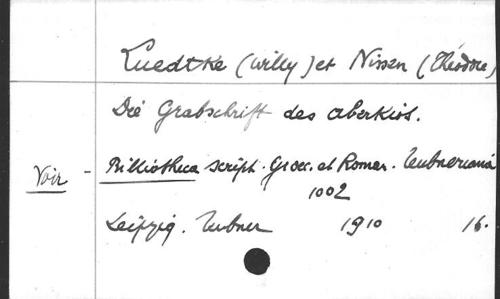 Luedtke (Willy) et Nissen (Théodore)
Die Grabschrift des Aberkios.
Voir - Bibliotheca script. Graec. et Roman. Teubneriana
1002
Leipzig. Teubner 1910 16.